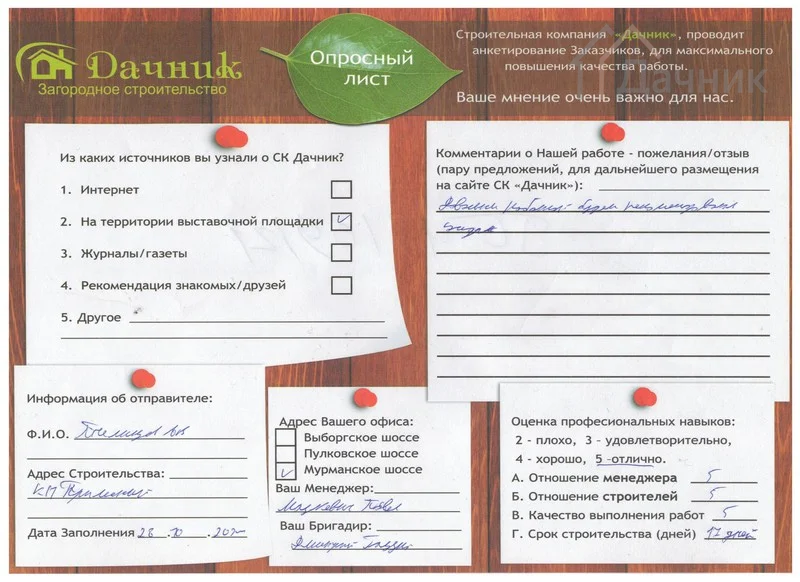 Дачник
Загородное строительство
Опросный
лист
Строительная компания «Дачник», проводит
анкетирование Заказчиков, для максимального
повышения качества работы.
Ваше мнение очень важно для нас.
Дачник
Из каких источников вы узнали о СК Дачник?
1. Интернет
2. На территории выставочной площадки
3. Журналы/газеты
4. Рекомендация знакомых/друзей
5. Другое
Комментарии о Нашей работе - пожелания/отзыв
(пару предложений, для дальнейшего размещения
на сайте СК «Дачник»):
Информация об отправителе:
Ф.И.О.
Адрес Строительства:
КП
Дата Заполнения 28.10.
Адрес Вашего офиса:
Выборгское шоссе
Пулковское шоссе
Мурманское шоссе
Ваш Менеджер:
Павел
Ваш Бригадир:
Дмитрий
Оценка профессиональных навыков:
2 - плохо, 3 - удовлетворительно,
4 - хорошо, 5 -отлично.
А. Отношение менеджера 5
Б. Отношение строителей 5
В. Качество выполнения работ 5
Г. Срок строительства (дней) 17 дней